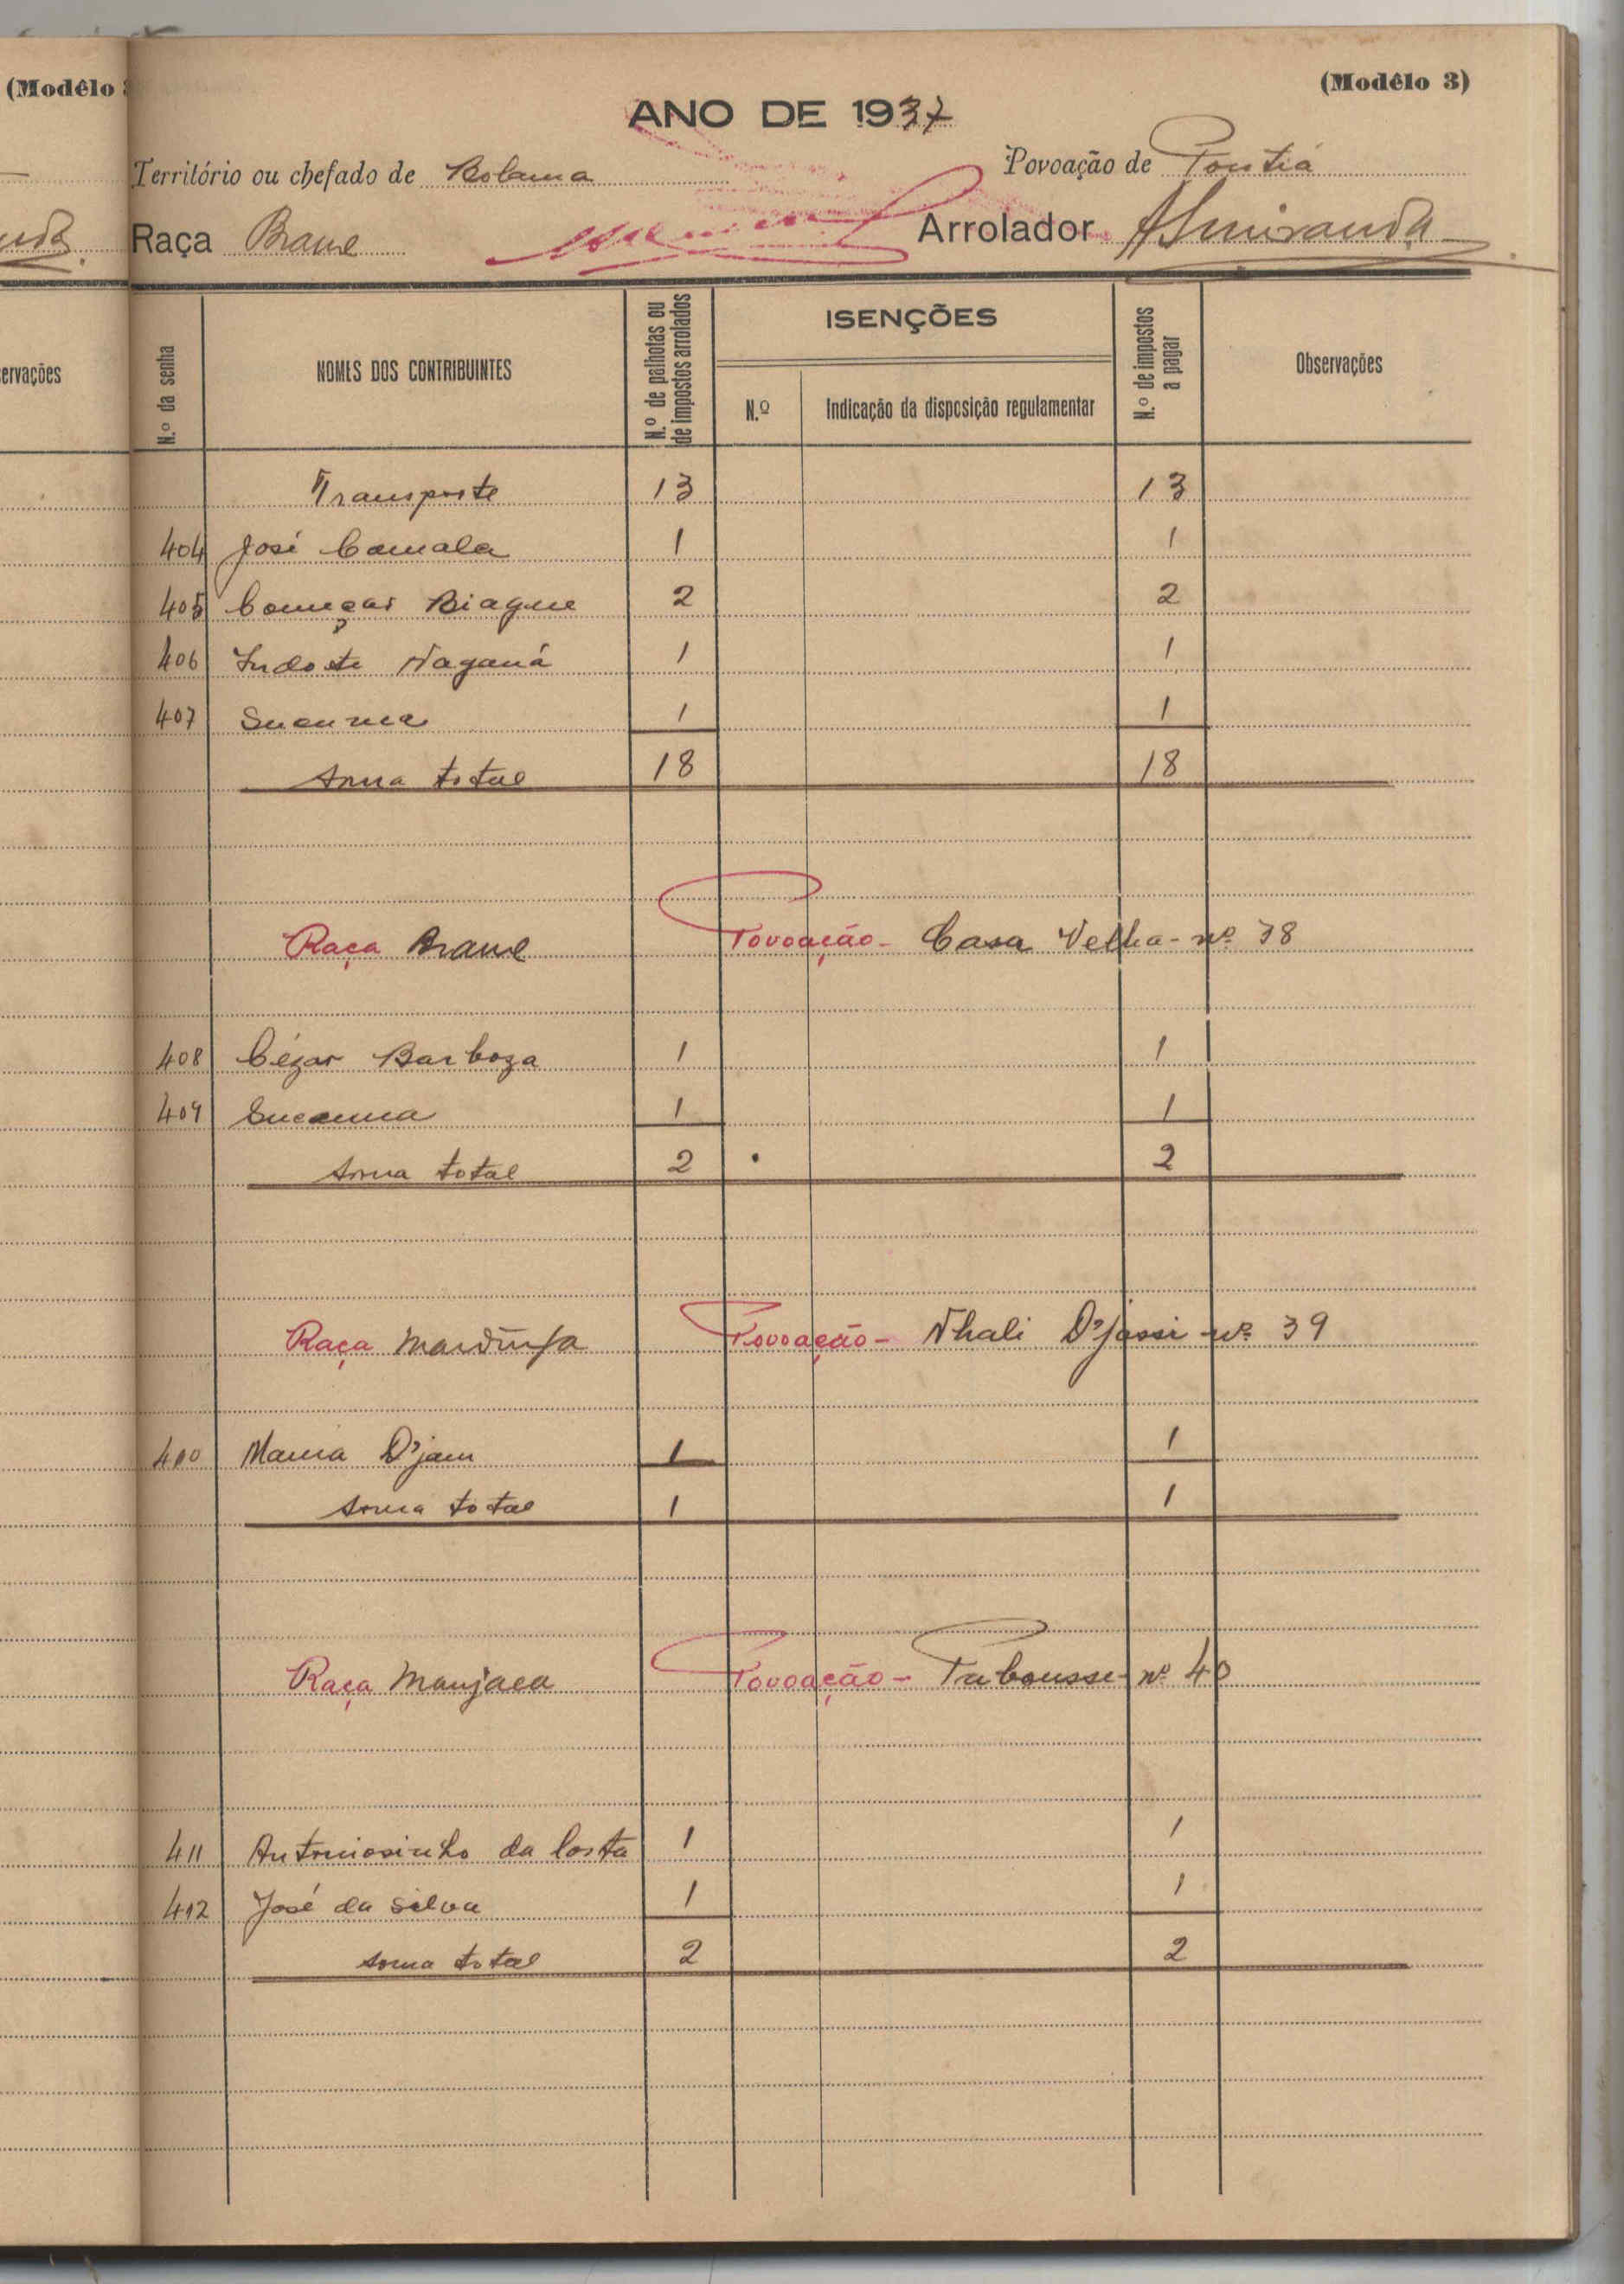 (Modêlo
(Modêlo 3)
ANO DE 1937
Território ou chefado de Bolama
Povoação de Pontiá
Raça Brame
Arrolador ASmiranda
ervações
N.º da senha
NOMES DOS CONTRIBUINTES
N.º de palhotas ou de impostos arrolados
ISENÇÕES
N.º
Indicação da disposição regulamentar
N.º de impostos a pagar
Observações
Transporte 13 13
404 José Camala 1 1
405 Começar Biague 2 2
406 Indo te Naganá 1 1
407 Sucuma 1 1
Soma total 18 18
Raça Brame Povoação - Casa Velha - nº 38
408 Cézar Barboza 1 1
409 Sucuma 1 1
Soma total 2 2
Raça Mandinga Povoação - Nhali D'jassi nº 39
410 Mama D'jam 1 1
Soma total 1 1
Raça Manjaca Povoação - Pubousse - nº 40
411 Antoniosinho da Costa 1 1
412 José da Silva 1 1
Soma total 2 2